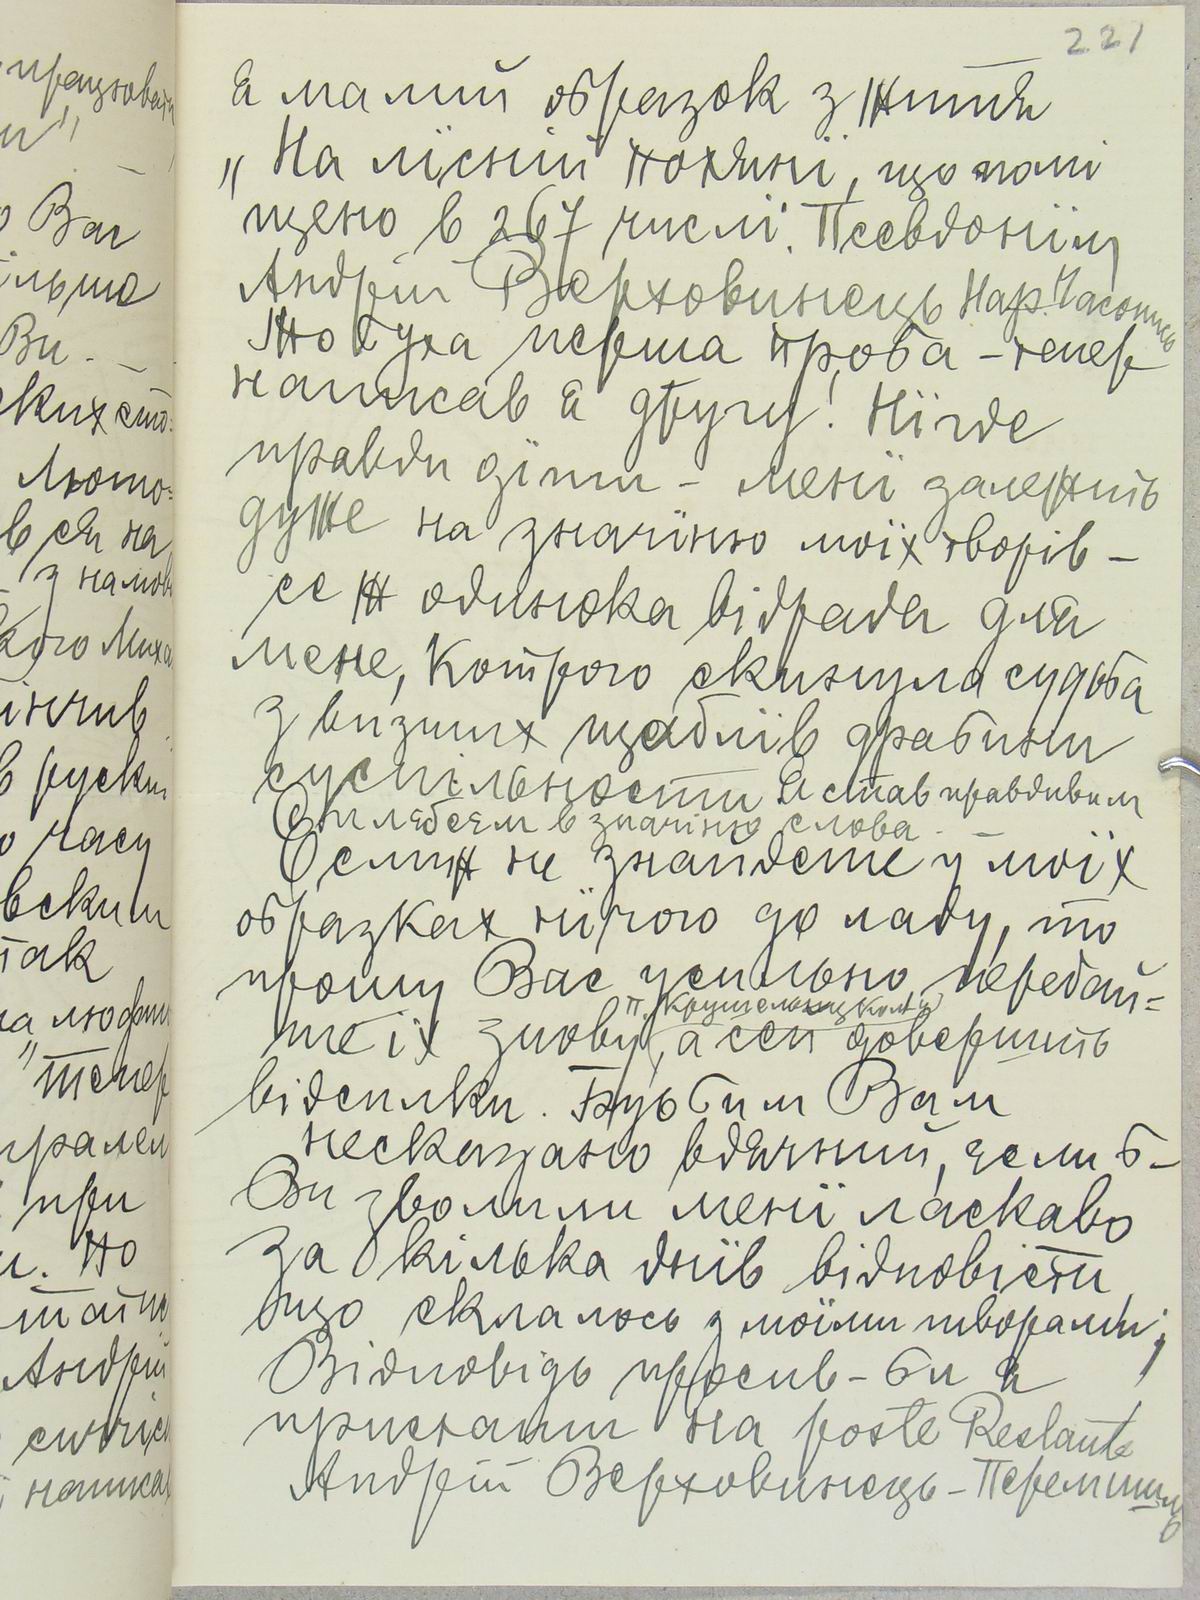 221
я малий образок з життя
"На лісній поляні, що помі
щено в 267 числі. Псевдонїм
Андрій Верховинець Нар. Часопись
То була перша проба – тепер
написав я другу! Нїгде
правди діти – менї залежить
дуже на значіню моїх творів –
се ж одинока відрада для
мене, котрого скинула судьба
з визших щаблїв драбини
суспільности Я став правдивим
в значіню слова. –
Если ж не знайдете у моїх
образках нїчого до ладу, то
прошу Вас усильно, передай=
те їх знову п. Крушельницкому, а сей довершить
відсилки. Був би м Вам
несказано вдячний, если б –
Ви зволили менї ласкаво
за кілька днїв відповісти,
що склалось з моїми творами;
Відповідь просив – би я
прислати на poste Restante
Андрій Верховинець – Перемишль
працювати
Ваг
більше
Ви. –
ских сто=
Люто=
в ся на
з намов
кого Миха
інчив
в руски
о часу
вским
так
на людин
"тепер
при
и. Но
Андрій
написа